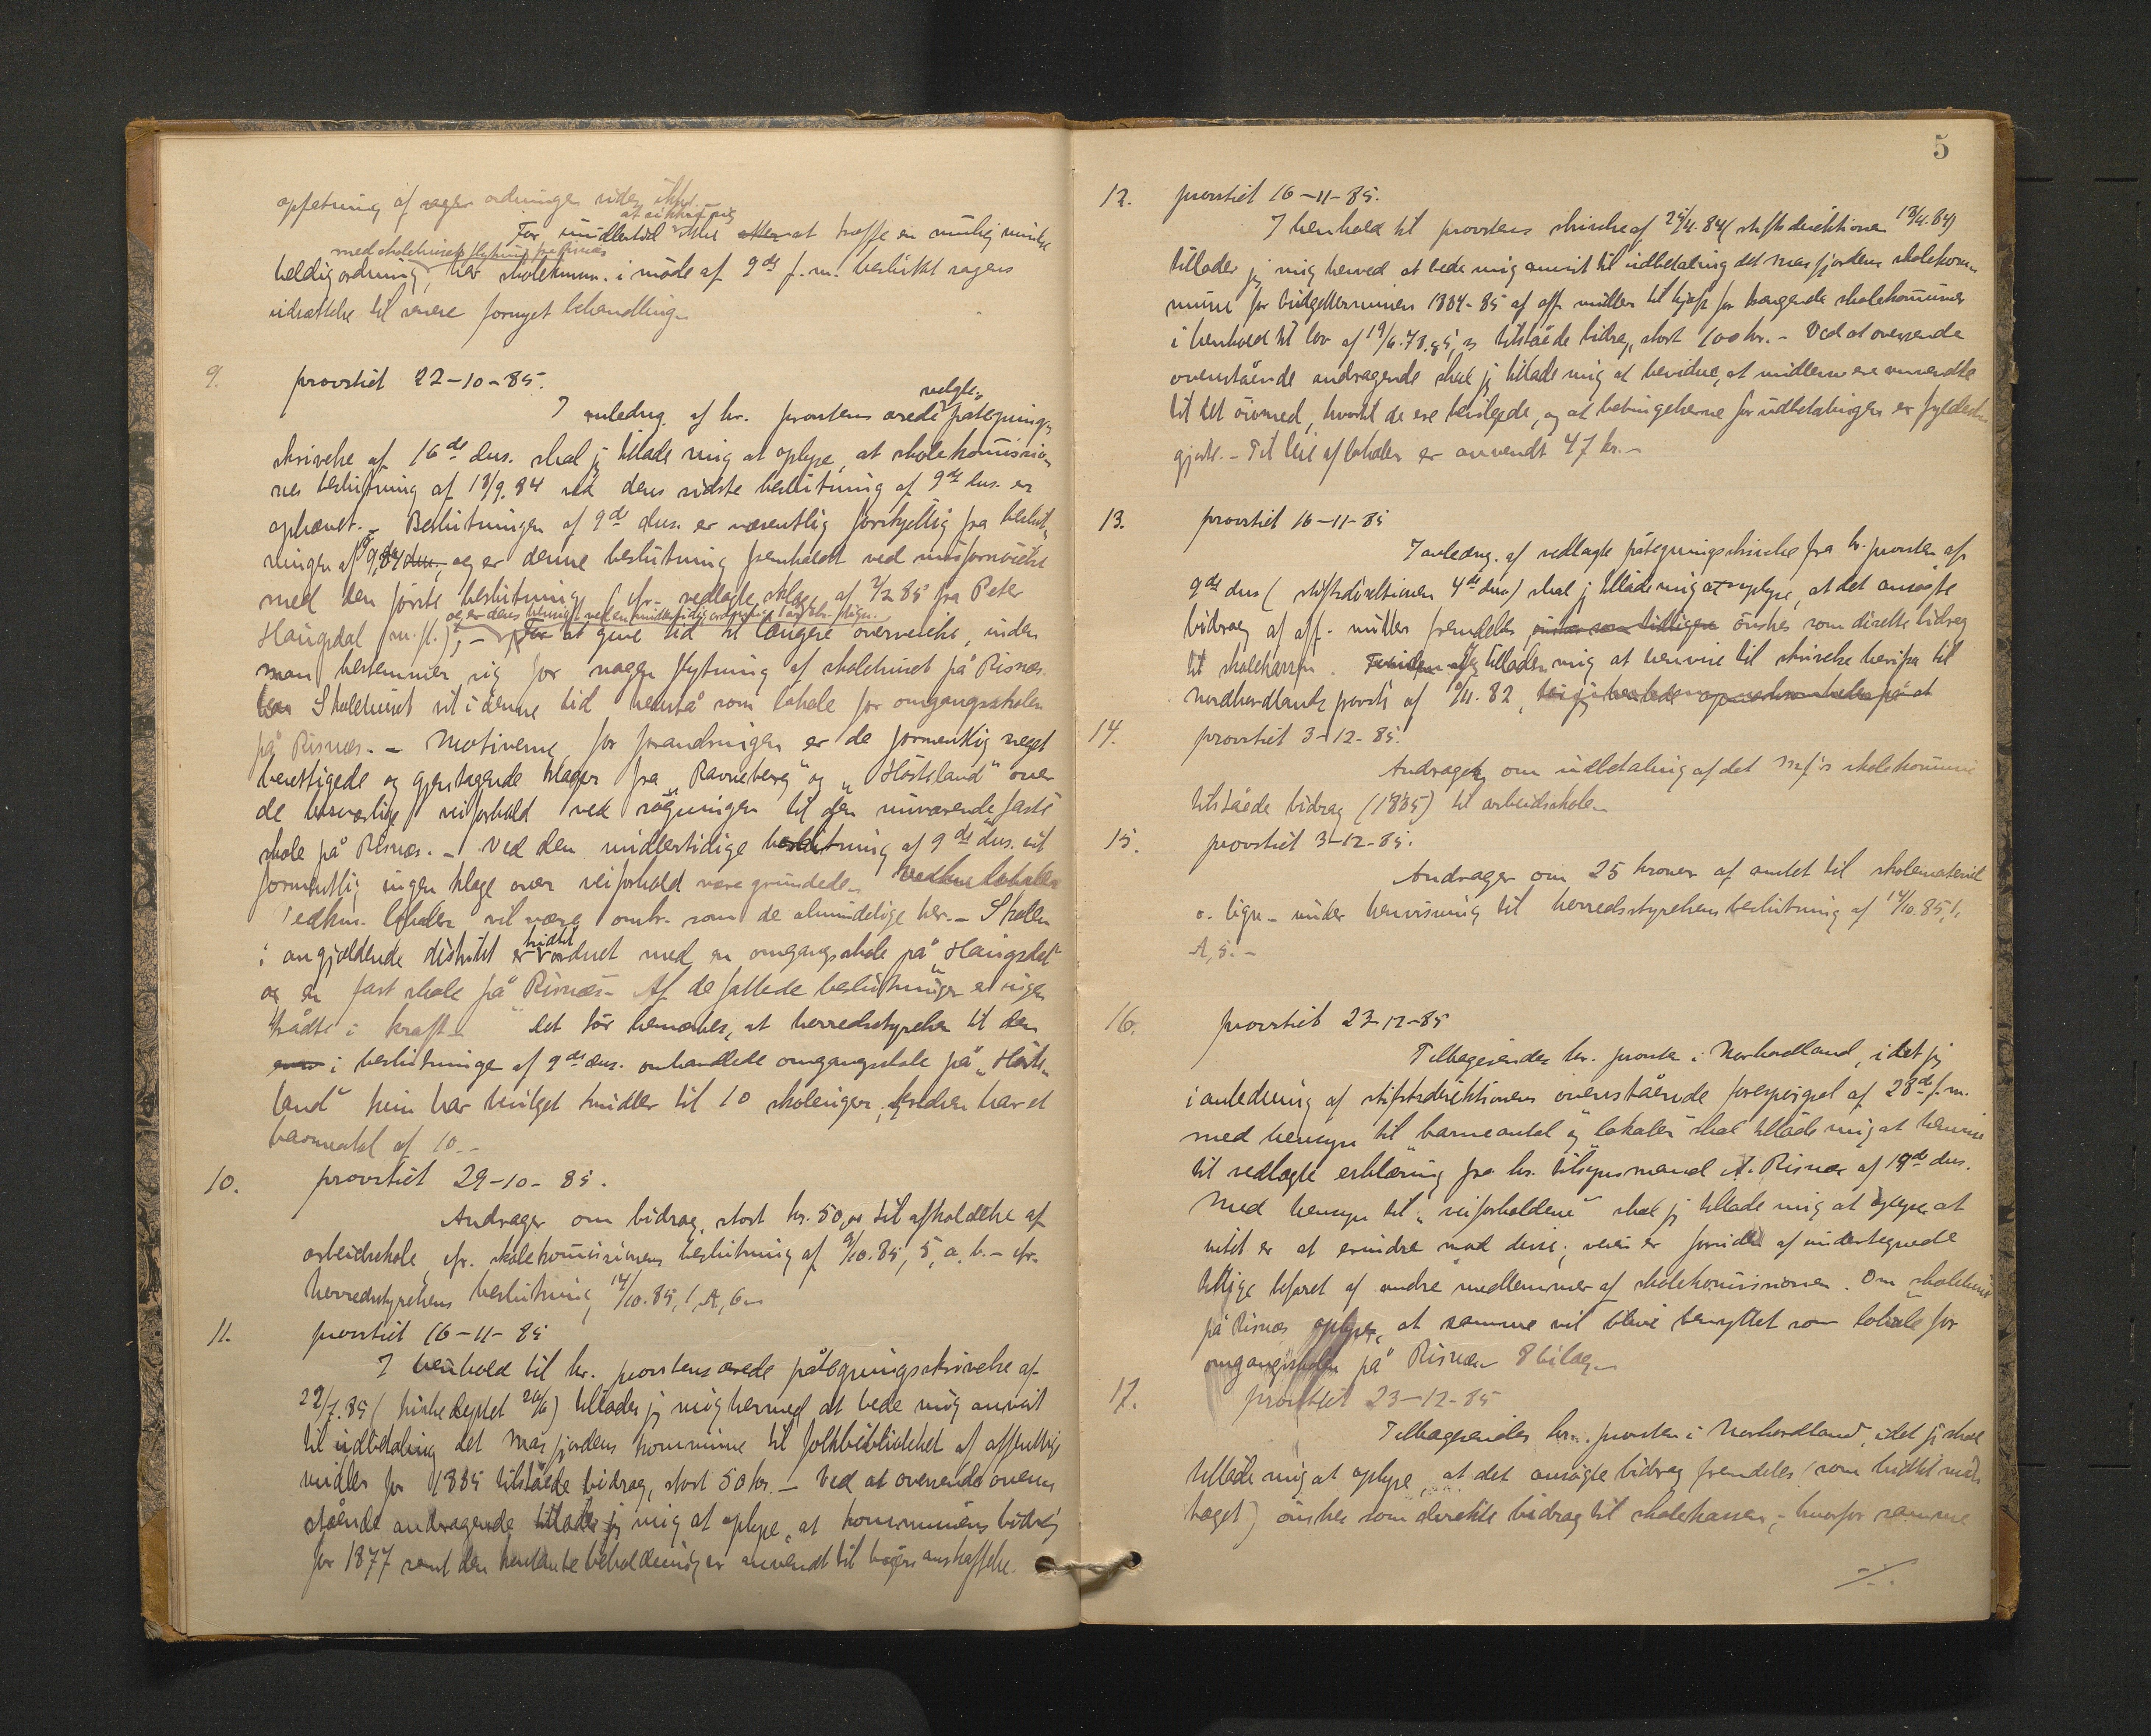 opfatning af ordningen siden
at sikkre sig
For imidlertid ikke at træffe en mulig mindre
med skolehusets flytning fra Risnæs
heldig ordning, har skolekomm. i möde af 9de f.m. besluttet sagens
udsættelse til senere fornyet behandling.
9. provstiet 22-10-85.
velgb.
I anledng. af hr. provstens ærede påtegnings
skrivelse af 16de dns. skal jeg tillade mig at oplyse, at skolekommission
nes beslutning af 18/9.84 ved dens sidste beslutning af 9de dns. er
ophævet. - Beslutningen af 9de dns. er væsentlig forskjellig fra beslut-
ningen af og er denne beslutning fremholdt ved misfornöielse
med den förste beslutning (cfr. vedlagte klage af 4/2 85 fra Peter
og er dens hensigt ved en midlertidig ordning
Haugsdal m.fl.), - at give tid til længere overveielse, inden
man bestemmer sig for nogen flytning af skolehuset på Risnæs.
Skolehuset vil i denne tid henstå som lokale for omgangsskolen
på Risnæs. - Motiverne for forandringen er de formentlig meget
berettigede og gjentagende klager fra "Ravneberg" og "Hösteland" over
de besværlige veiforhold ved sögningen til den nuværende faste
skole på Risnæs. - Ved den midlertidige beslutning af 9de dns. vil
formentlig ingen klage over veiforhold være grundede. Vedkm. lokaler
Vedkm. lokaler vil være omtr. som de almindelige her. - Skolen
hidtil
i angjældende distrikt er ordnet med en omgangsskole på "Haugsdal"
og en fast skole på "Risnæs". Af de fattede beslutninger er ingen
trådt i kraft. - Det bör bemærkes, at herredsstyrelsen til den
i beslutningen af 9de dns. omhandlede omgangsskole på "Höste-
land" kun har bevilget midler til 10 skoleuger; kredsen har et
barneantal af 10. -
10. provstiet 29-10-85.
Andrager om bidrag, stort kr. 50,00 til afholdelse af
arbeidsskole, cfr. skolekommissionens beslutning af 9/10.85, 5, a. b. - cfr.
herredsstyrelsens beslutning 14/10.85, 1, A, 6. -
11. provstiet 16-11-85
I henhold til hr. provstens ærede påtegningsskrivelse af
22/7.85 (kirkedeptet 20/6) tillader jeg mig hermed at bede mig anvist
til udbetaling det Masfjordens kommune til folkbibliotheket af offentlige
midler for 1885 tilståede bidrag, stort 50 kr. - Ved at oversende oven-
stående andragende tillader jeg mig at oplyse, at kommunens bidrag
for 1877 samt den kontante beholdning er anvendt til bögers anskaffelse.
5
12. provstiet 16-11-85.
I henhold til provstens skrivelse af 25/4.84 (stiftsdirektionen 18/4.84)
tillader jeg mig herved at bede mig anvist til udbetaling det Masfjordens skolekom-
mune for budgetterminen 1884-85 af off. midler til hjælp for trængende skolekommuner
i henhold til lov af tilståede bidrag, stort 100 kr. - Ved at oversende
ovenstående andragende skal jeg tillade mig at bevidne, at midlerne ere anvendte
til det öiemed, hvortil de ere bevilgede, og at betingelserne for udbetalingen er fyldest-
gjorte. - Til leie af lokaler er anvendt 47 kr. -
13. provstiet 16-11-85
I anledng. af vedlagte påtegningsskrivelse fra hr. provsten af
9de dns (stiftsdirektionen 4de dns) skal jeg tillade mig at oplyse, at det ansögte
bidrag af off. midler fremdeles önskes som direkte bidrag
til skolekassen. Jeg tillader mig at henvise til skrivelse herifra til
Nordhordlands provsti af 9/11.82,
14. provstiet 3-12-85.
Andragende om udbetaling af det Msfj's skolekommune
tilståede bidrag (1885) til arbeidsskolen
15. provstiet 3-12-85.
Andrager om 25 kroner af amtet til skolemateriel
o. lign. - under henvisning til herredsstyrelsens beslutning af 14/10.85, 1,
A, 5. -
16. provstiet 23-12-85
Tilbagesendes hr. provsten i Nordhordland, idet jeg
i anledning af stiftsdirektionens ovenstående forespörgsel af 28de f.m.
med hensyn til "barneantal og lokaler" skal tillade mig at henvise
til vedlagte erklæring fra hr. tilsynsmand A. Risnæs af 19de dns.
Med hensyn til "veiforholdene" skal jeg tillade mig at oplyse at
intet er at erindre mod disse; veien er foruden af undertegnede
tillige befaret af andre medlemmer af skolekommissionen. Om skolehuset
på Risnæs oplyses, at samme vil blive benyttet som lokale for
omgangsskolen på Risnæs. 8 bilag. -
17. provstiet 23-12-85
Tilbagesendes hr. provsten i Nordhordland, idet jeg skal
tillade mig at oplyse, at det ansögte bidrag fremdeles (som hidtil mod-
taget) önskes som direkte bidrag til skolekassen, - hvorfor samme
-/-.